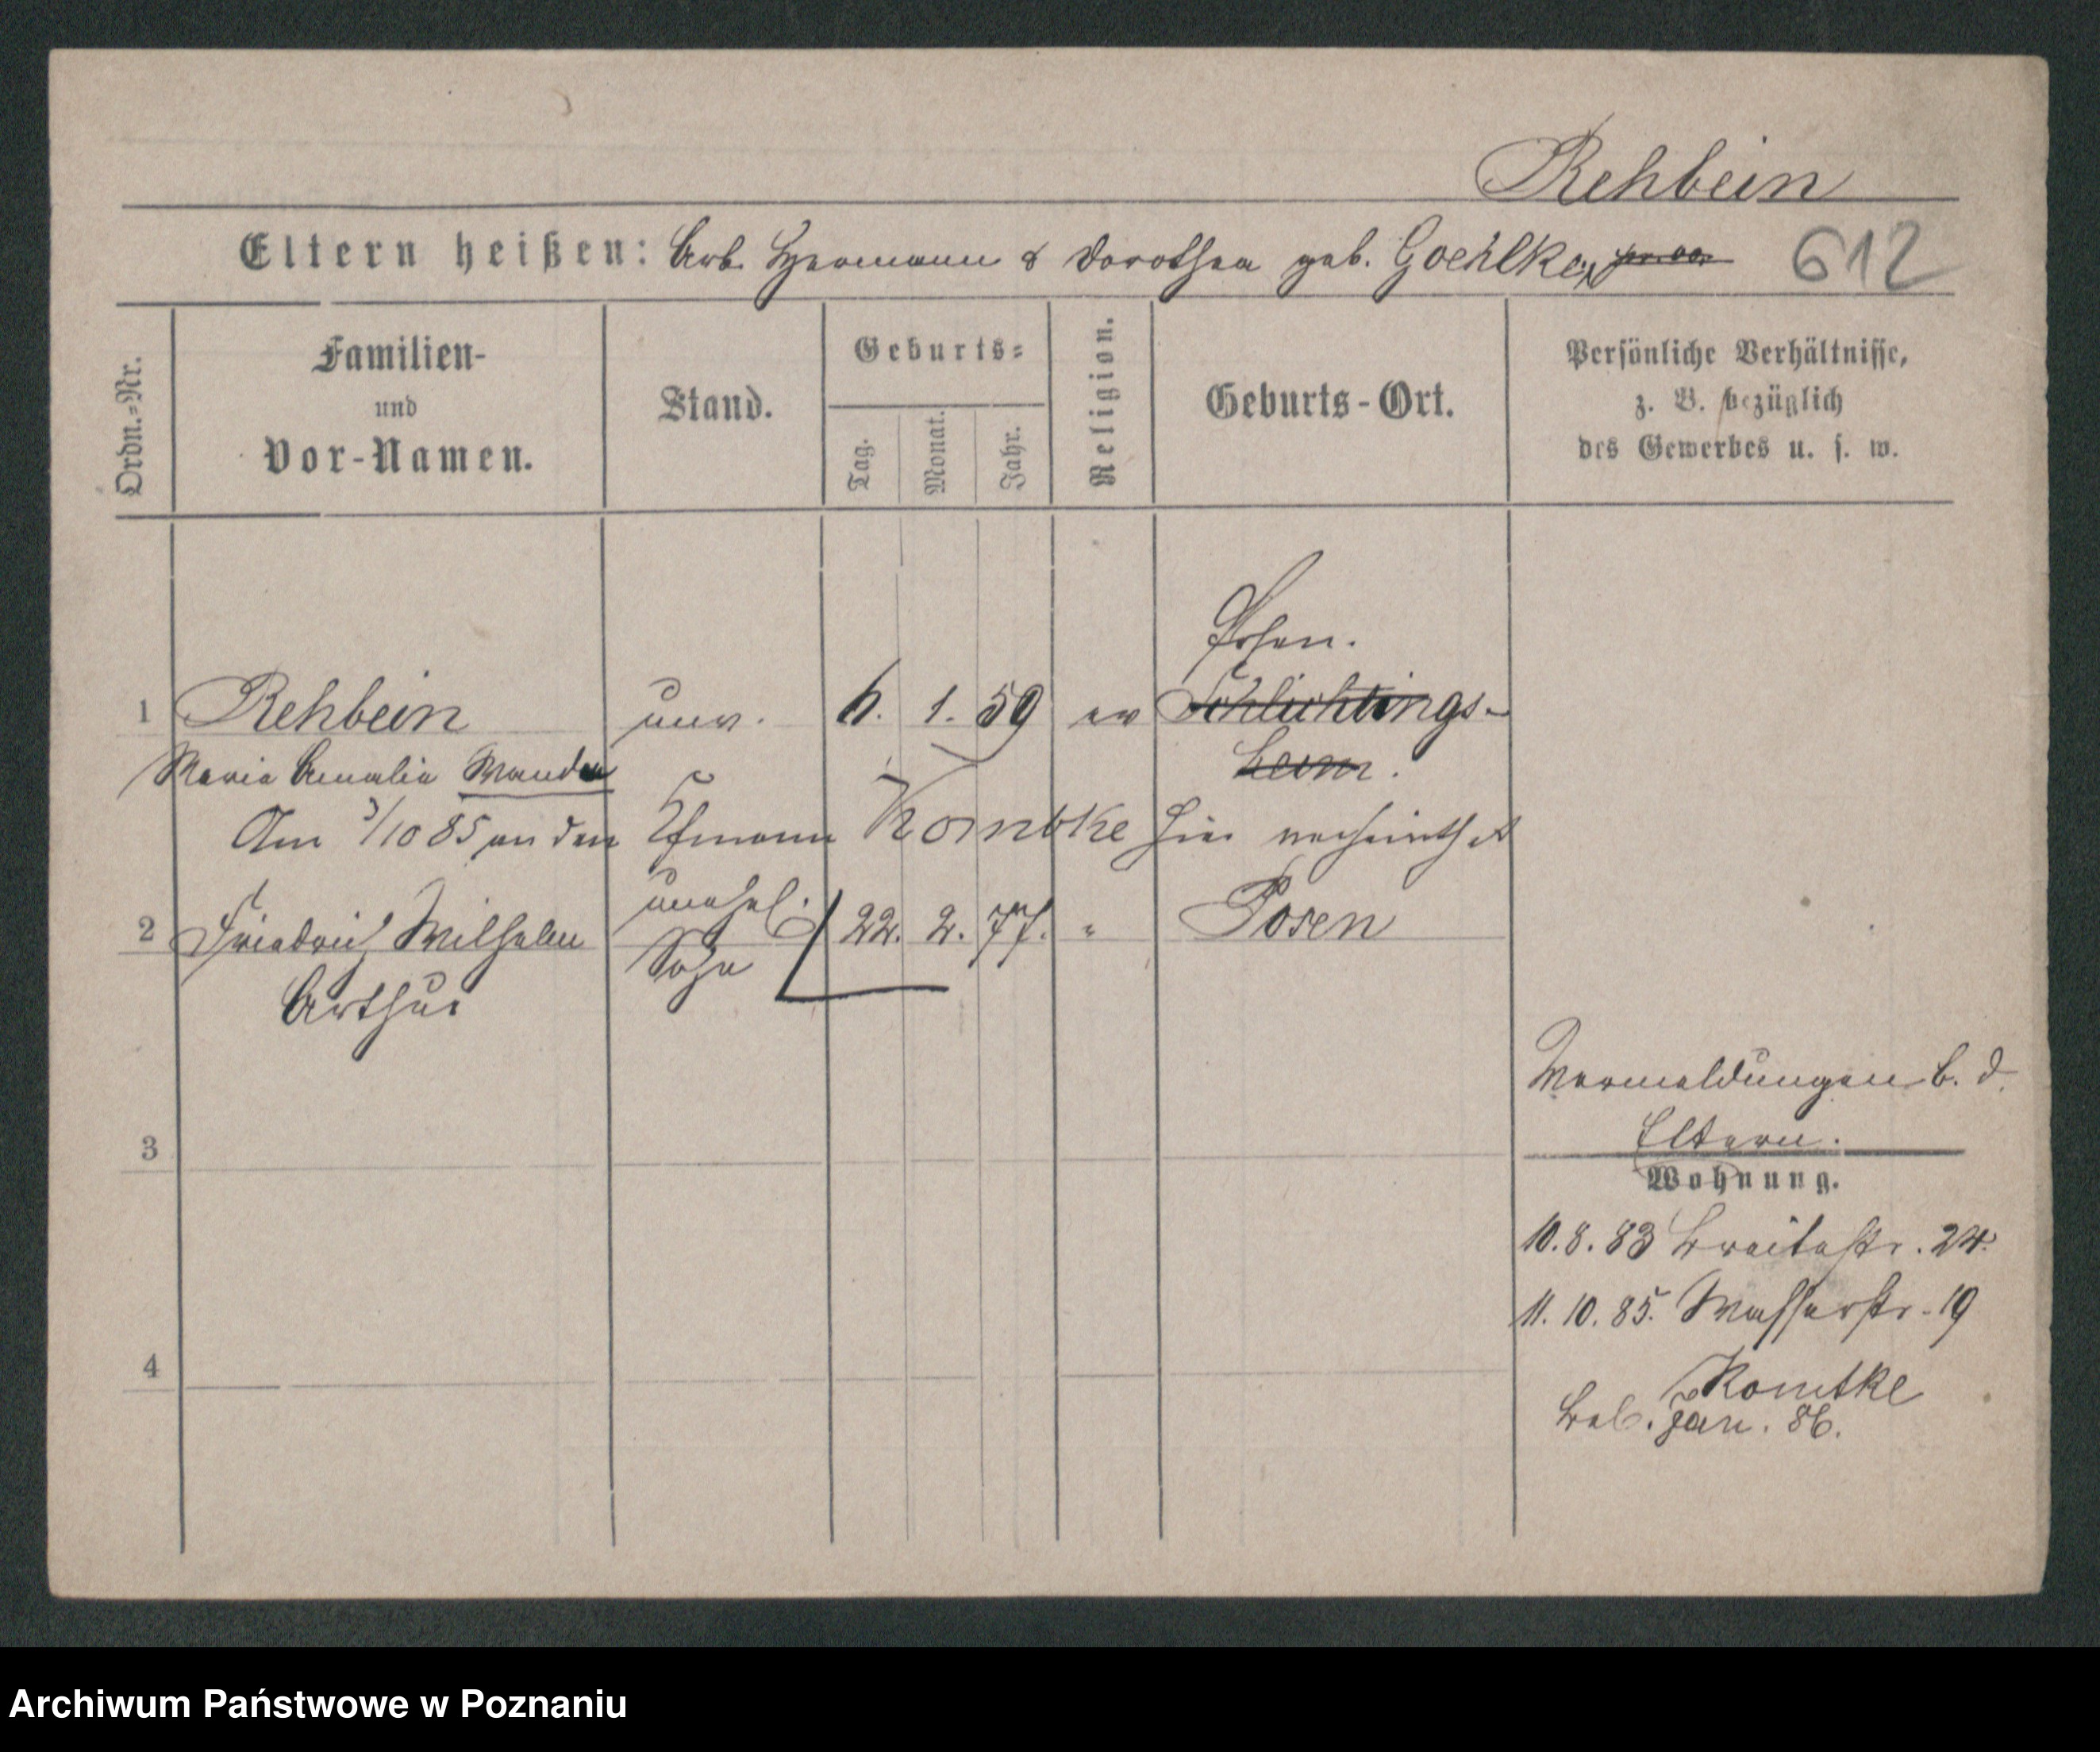 Rehbein
Eltern heißen: Arb. Hermann & Dorothea geb. Goehlke
612
Ordn.-Nr.
Familien-
und
Vor-Namen.
Stand.
Geburts-
Tag. Monat. Jahr.
Religion.
Geburts-Ort.
Persönliche Verhältnisse,
z. B. bezüglich
des Gewerbes u. s. w.
Posen.
1 Rehbein unv. 6. 1. 59 ev Schlichtings-
heim.
Maria Amalia Wanda
Am 3/10 85 an den hier verheirathet
2 Friedrich Wilhelm unehel. 22. 2. 77. " Posen
Arthur Sohn
3
4
Vormeldungen b. d.
Eltern.
Wohnung.
10. 8. 83 Breitestr. 24.
11. 10. 85. Wasserstr. 19
Komtke
Bel. Jan. 86.
Archiwum Państwowe w Poznaniu